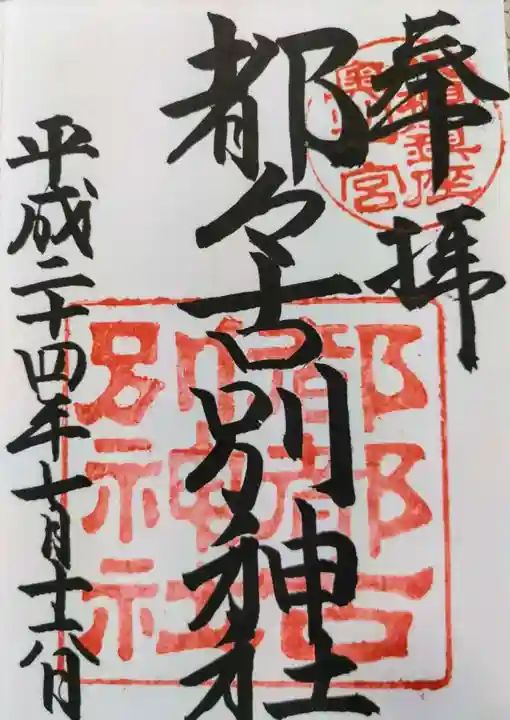 奉拝
都々古別神社
都都古
別神社
平成二十四年七月十六日